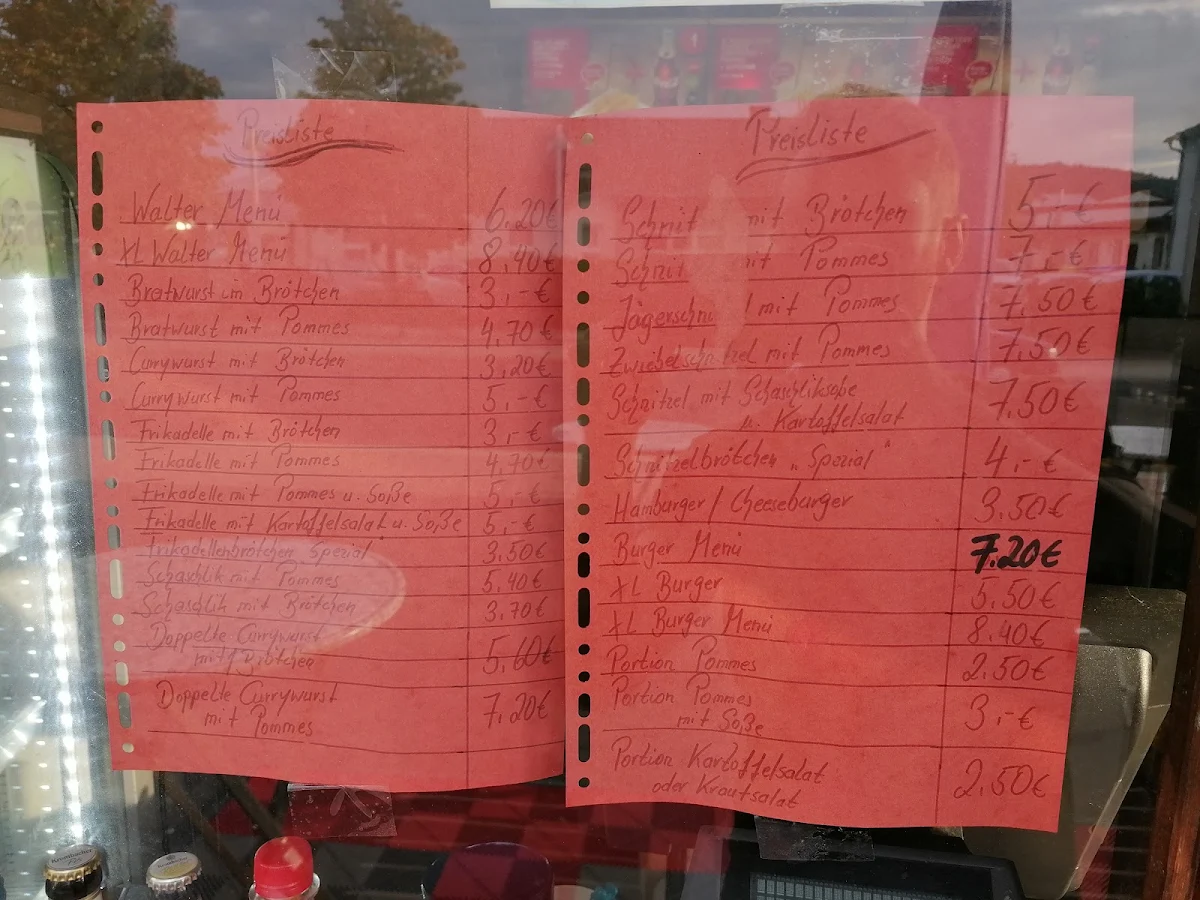 Preisliste
Walter Menü 6,20€
XL Walter Menü 8,40€
Bratwurst im Brötchen 3,-€
Bratwurst mit Pommes 4,70€
Currywurst mit Brötchen 3,20€
Currywurst mit Pommes 5,-€
Frikadelle mit Brötchen 3,-€
Frikadelle mit Pommes 4,70€
Frikadelle mit Pommes u. Soße 5,-€
Frikadelle mit Kartoffelsalat u. Soße 5,-€
Frikadellenbrötchen „Spezial" 3.50€
Schaschlik mit Pommes 5.40€
Schaschlik mit Brötchen 3.70€
Doppelte Currywurst
mit Brötchen 5,60€
Doppelte Currywurst
mit Pommes 7,20€
Preisliste
Schnit mit Brötchen 5,-€
Schnit mit Pommes 7,-€
Jägerschni l mit Pommes 7,50€
Zwiebelschnitzel mit Pommes 7,50€
Schnitzel mit Schaschliksoße
u. Kartoffelsalat 7,50€
Schnitzelbrötchen „Spezial" 4,-€
Hamburger/Cheeseburger 3.50€
Burger Menü 7.20€
XL Burger 5.50€
XL Burger Menü 8.40€
Portion Pommes 2.50€
Portion Pommes
mit Soße 3,-€
Portion Kartoffelsalat
oder Krautsalat 2.50€